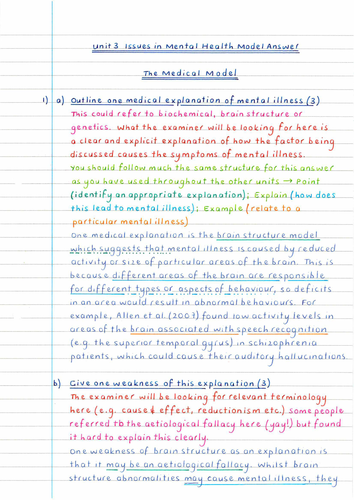 Unit 3 Issues in Mental Health Model Answer
The Medical Model
1) a) Outline one medical explanation of mental illness (3)
This could refer to biochemical, brain structure or
genetics. What the examiner will be looking for here is
a clear and explicit explanation of how the factor being
discussed causes the symptoms of mental illness.
You should follow much the same structure for this answer
as you have used throughout the other units → Point
(identify an appropriate explanation); Explain (how does
this lead to mental illness); Example (relate to a
particular mental illness)
One medical explanation is the brain structure model
which suggests that mental illness is caused by reduced
activity or size of particular areas of the brain. This is
because different areas of the brain are responsible
for different types or aspects of behaviour, so deficits
in an area would result in abnormal behaviours. For
example, Allen et al. (2007) found low activity levels in
areas of the brain associated with speech recognition
(e.g. the superior temporal gyrus) in schizophrenia
patients, which could cause their auditory hallucinations.
b) Give one weakness of this explanation (3)
The examiner will be looking for relevant terminology
here (e.g. cause & effect, reductionism etc.) Some people
referred to the aetiological fallacy here (yay!) but found
it hard to explain this clearly.
One weakness of brain structure as an explanation is
that it may be an aetiological fallacy. Whilst brain
structure abnormalities may cause mental illness, they